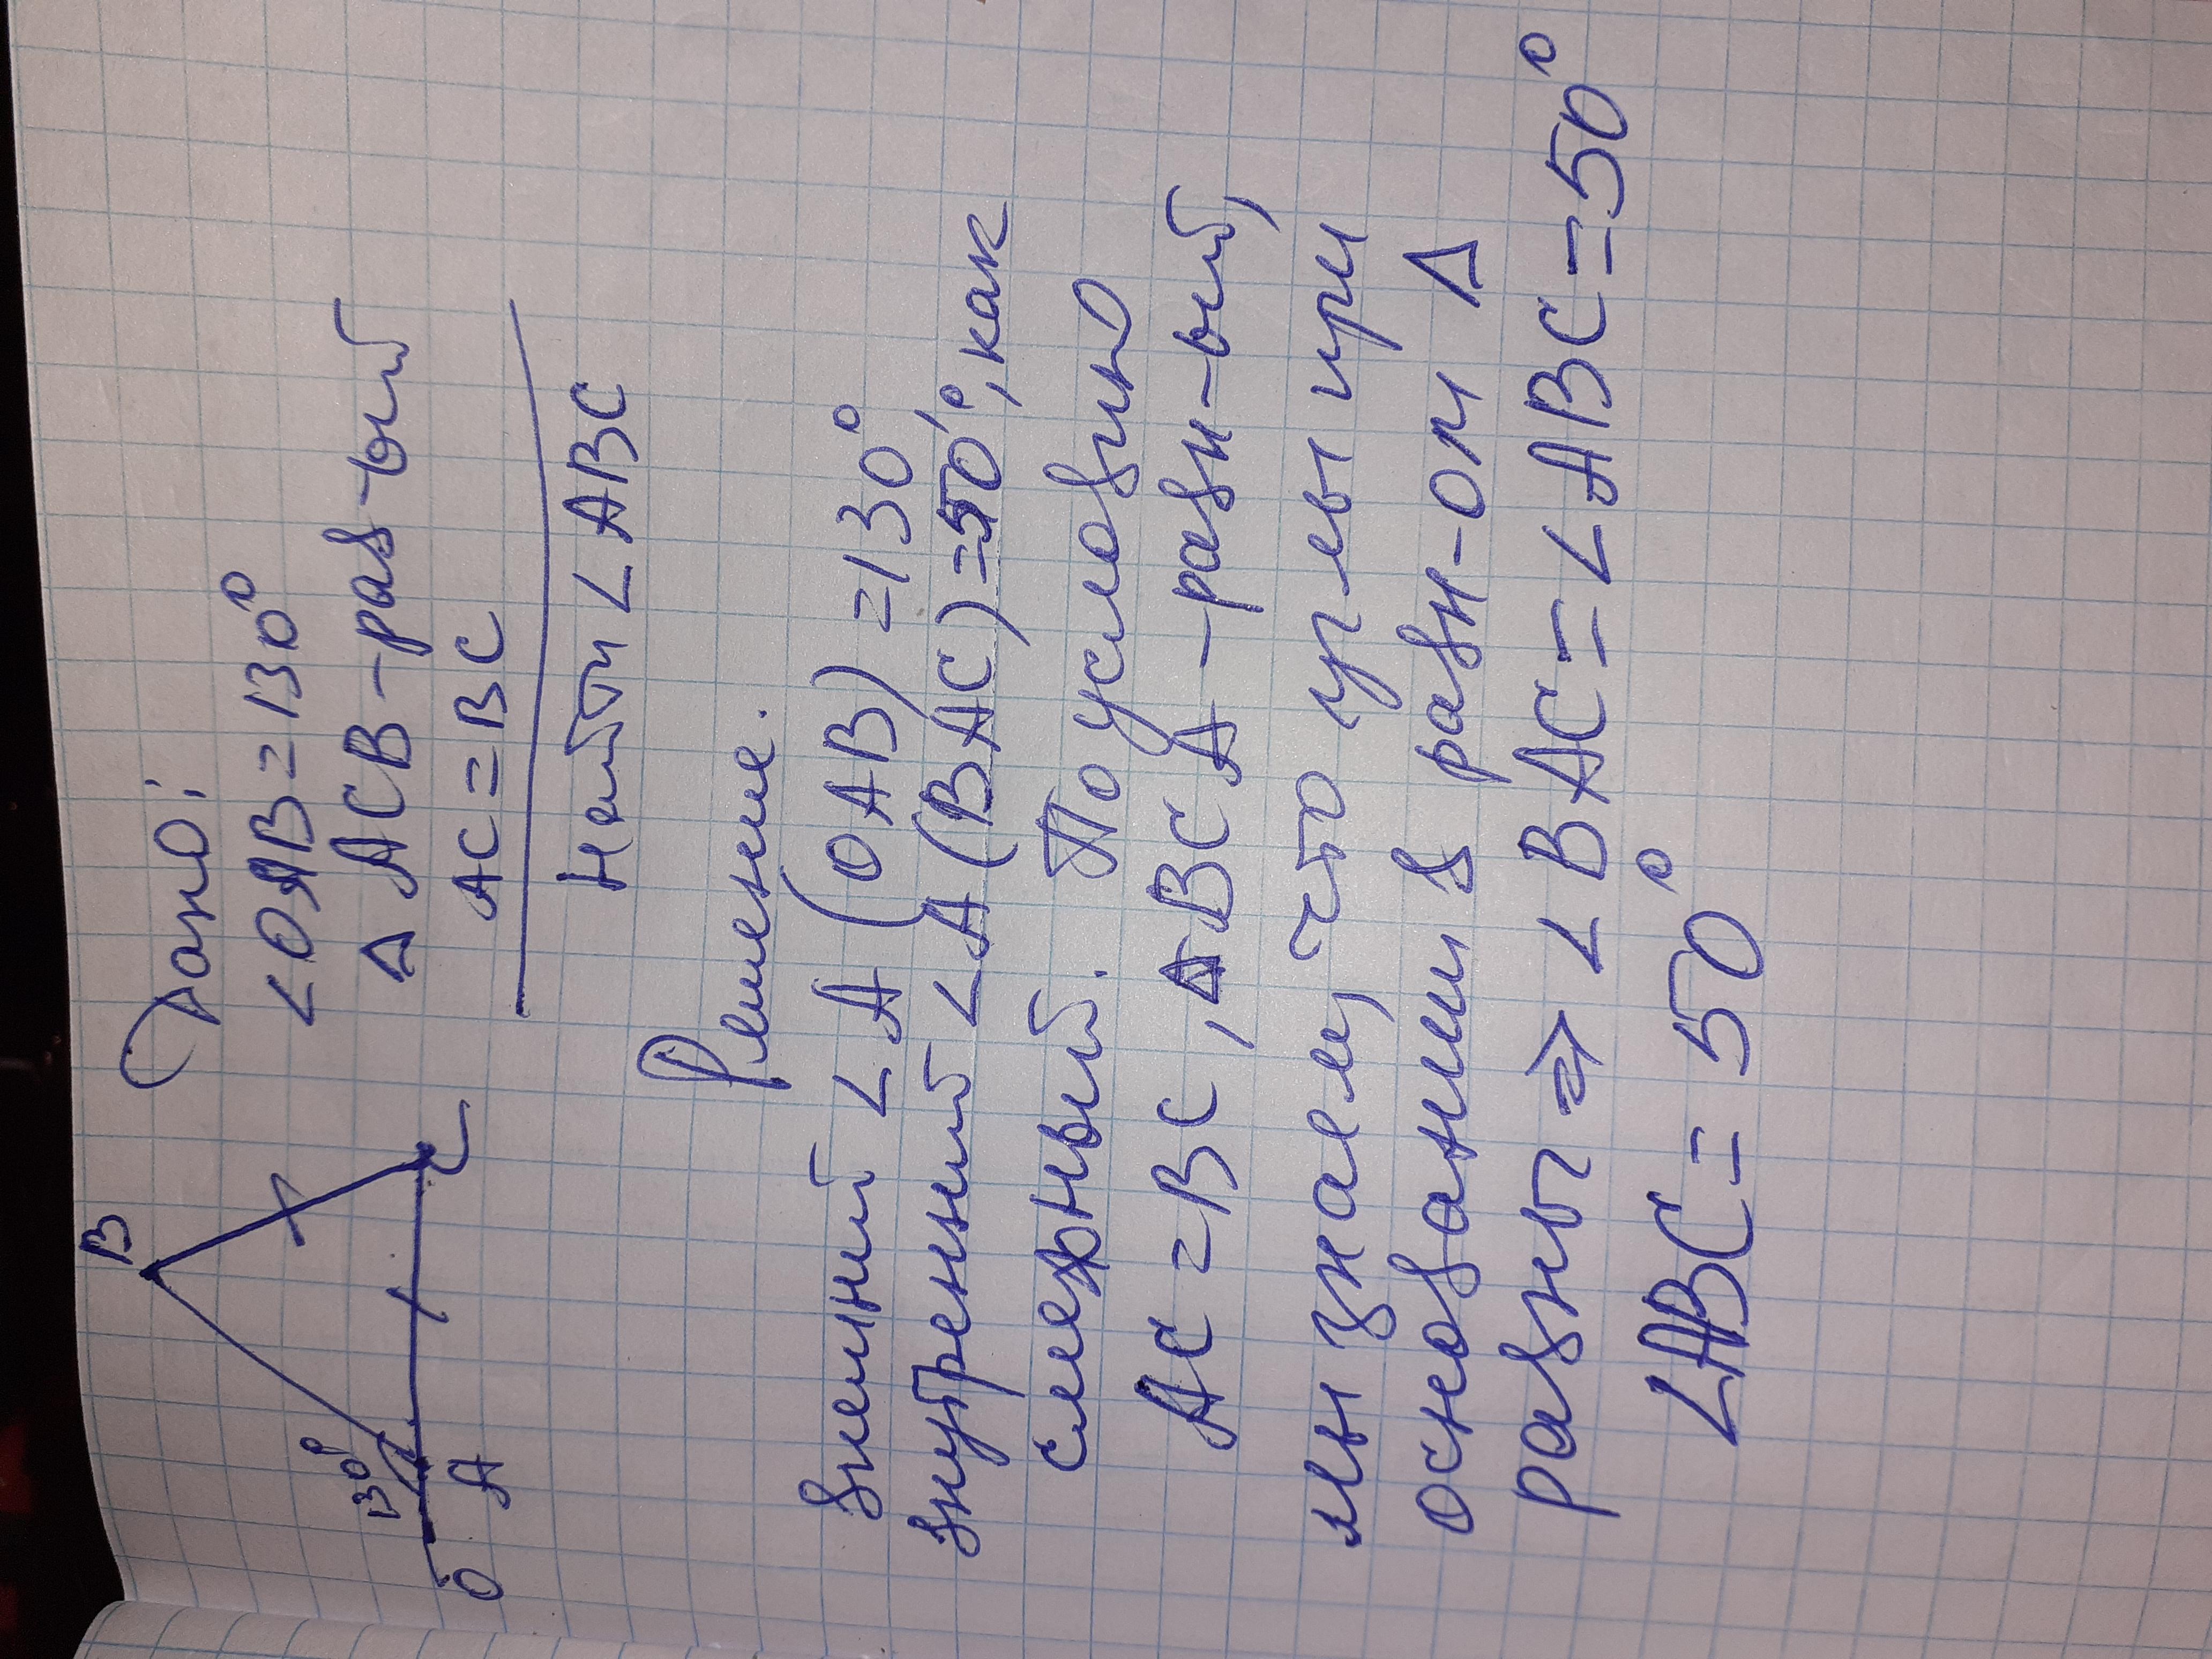 B
130°
O
A
C
Дано:
∠OAB=130°
△ ACB-рав-ый
AC=BC
Найти ∠ABC
Решение.
Внешний ∠A (OAB)=130°
внутрений ∠A(BAC)=50°, как
смежный. По условию
AC=BC, △BCA-равн-ый,
мы знаем, что углы при
основании в равн-ом △
равны => ∠BAC=∠ABC=50°
∠ABC=50°